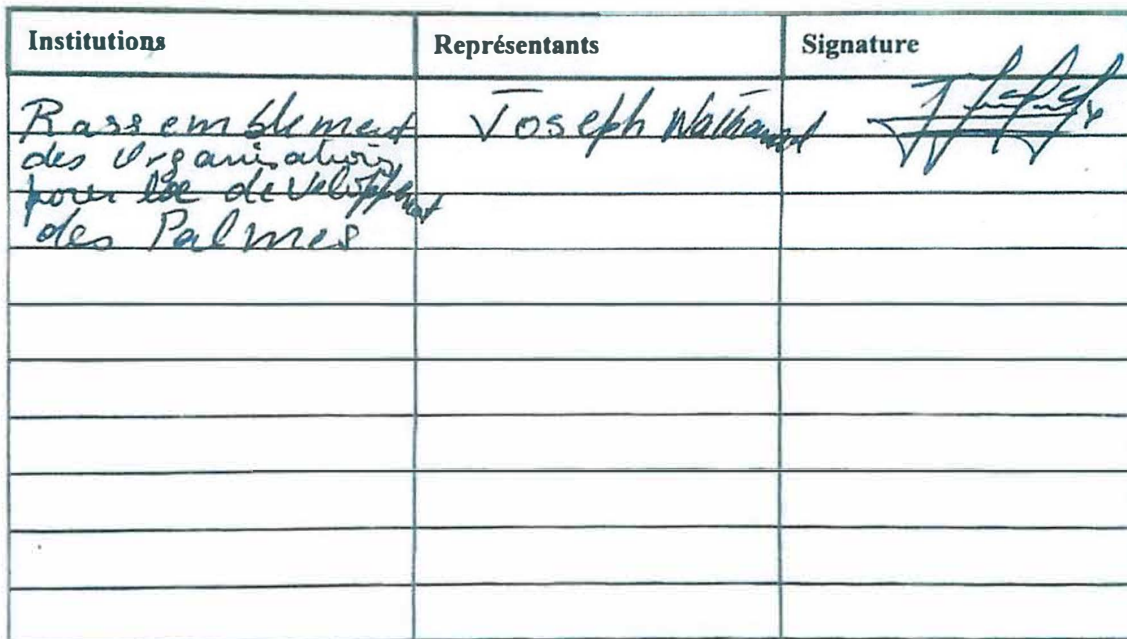 Institutions Représentants Signature
Rassemblement Joseph
des Organisations
pour le développement
des Palmes